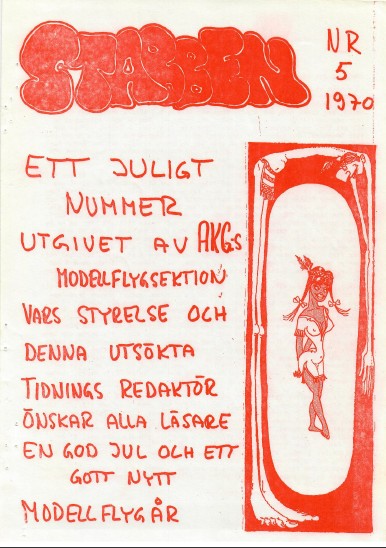 STABBEN
NR
5
1970
ETT JULIGT
NUMMER
UTGIVET AV AKG:s
MODELLFLYGSEKTION
VARS STYRELSE OCH
DENNA UTSÖKTA
TIDNINGS REDAKTÖR
ÖNSKAR ALLA LÄSARE
EN GOD JUL OCH ETT
GOTT NYTT
MODELLFLYGÅR